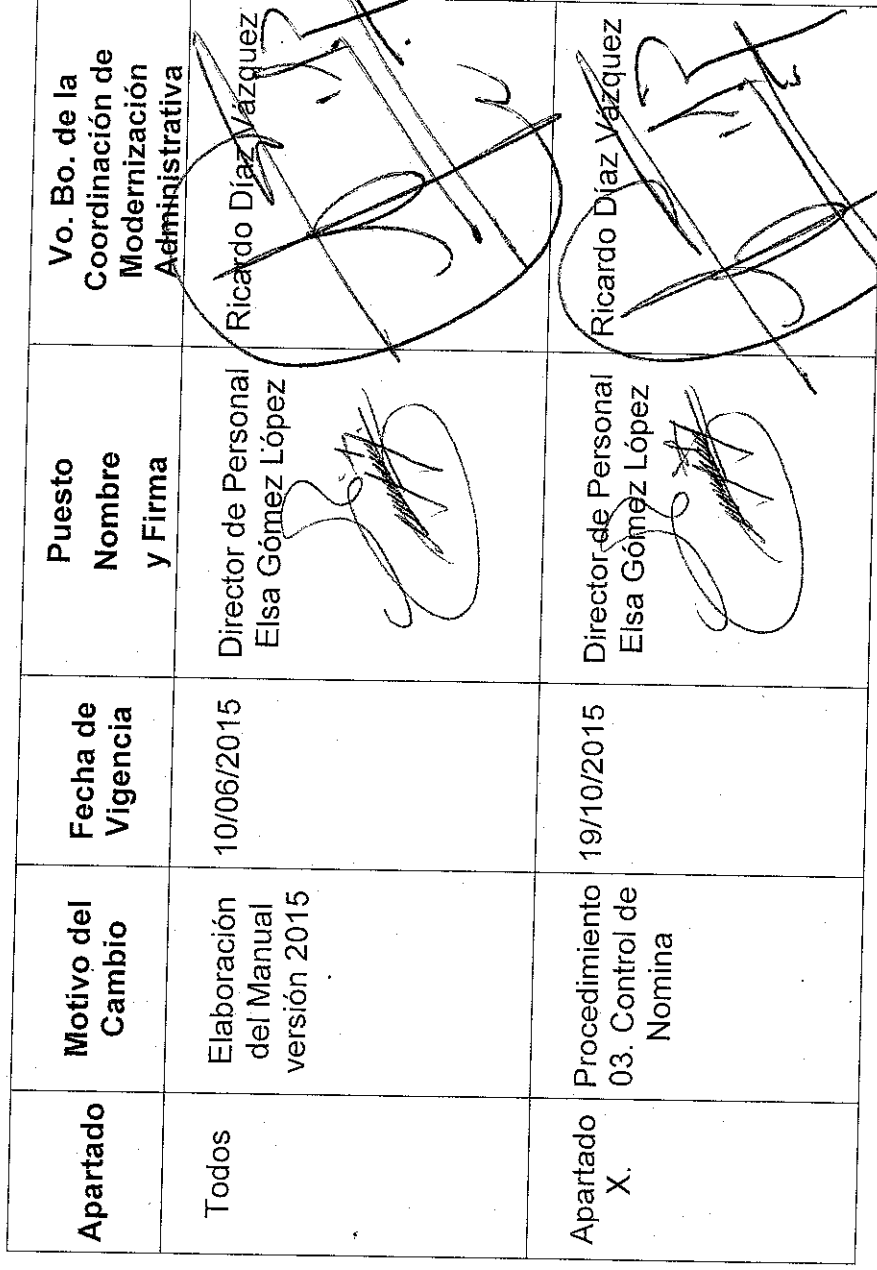 Apartado
Motivo del
Cambio
Fecha de
Vigencia
Puesto
Nombre
y Firma
Vo. Bo. de la
Coordinación de
Modernización
Administrativa
Todos
Elaboración
del Manual
versión 2015
10/06/2015
Director de Personal
Elsa Gómez López
Ricardo Díaz Vázquez
Apartado
X.
Procedimiento
03. Control de
Nomina
19/10/2015
Director de Personal
Elsa Gómez López
Ricardo Díaz Vázquez